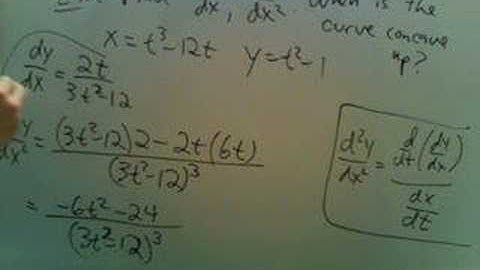 dy/dx, d²y/dx² When is the
curve concave
up?
x = t³ - 12t y = t² - 1
dy/dx = 2t/(3t² - 12)
y/dx² = ((3t² - 12)2 - 2t(6t))/(3t² - 12)³
= (-6t² - 24)/(3t² - 12)³
d²y/dx² = (d/dt(dy/dx))/(dx/dt)